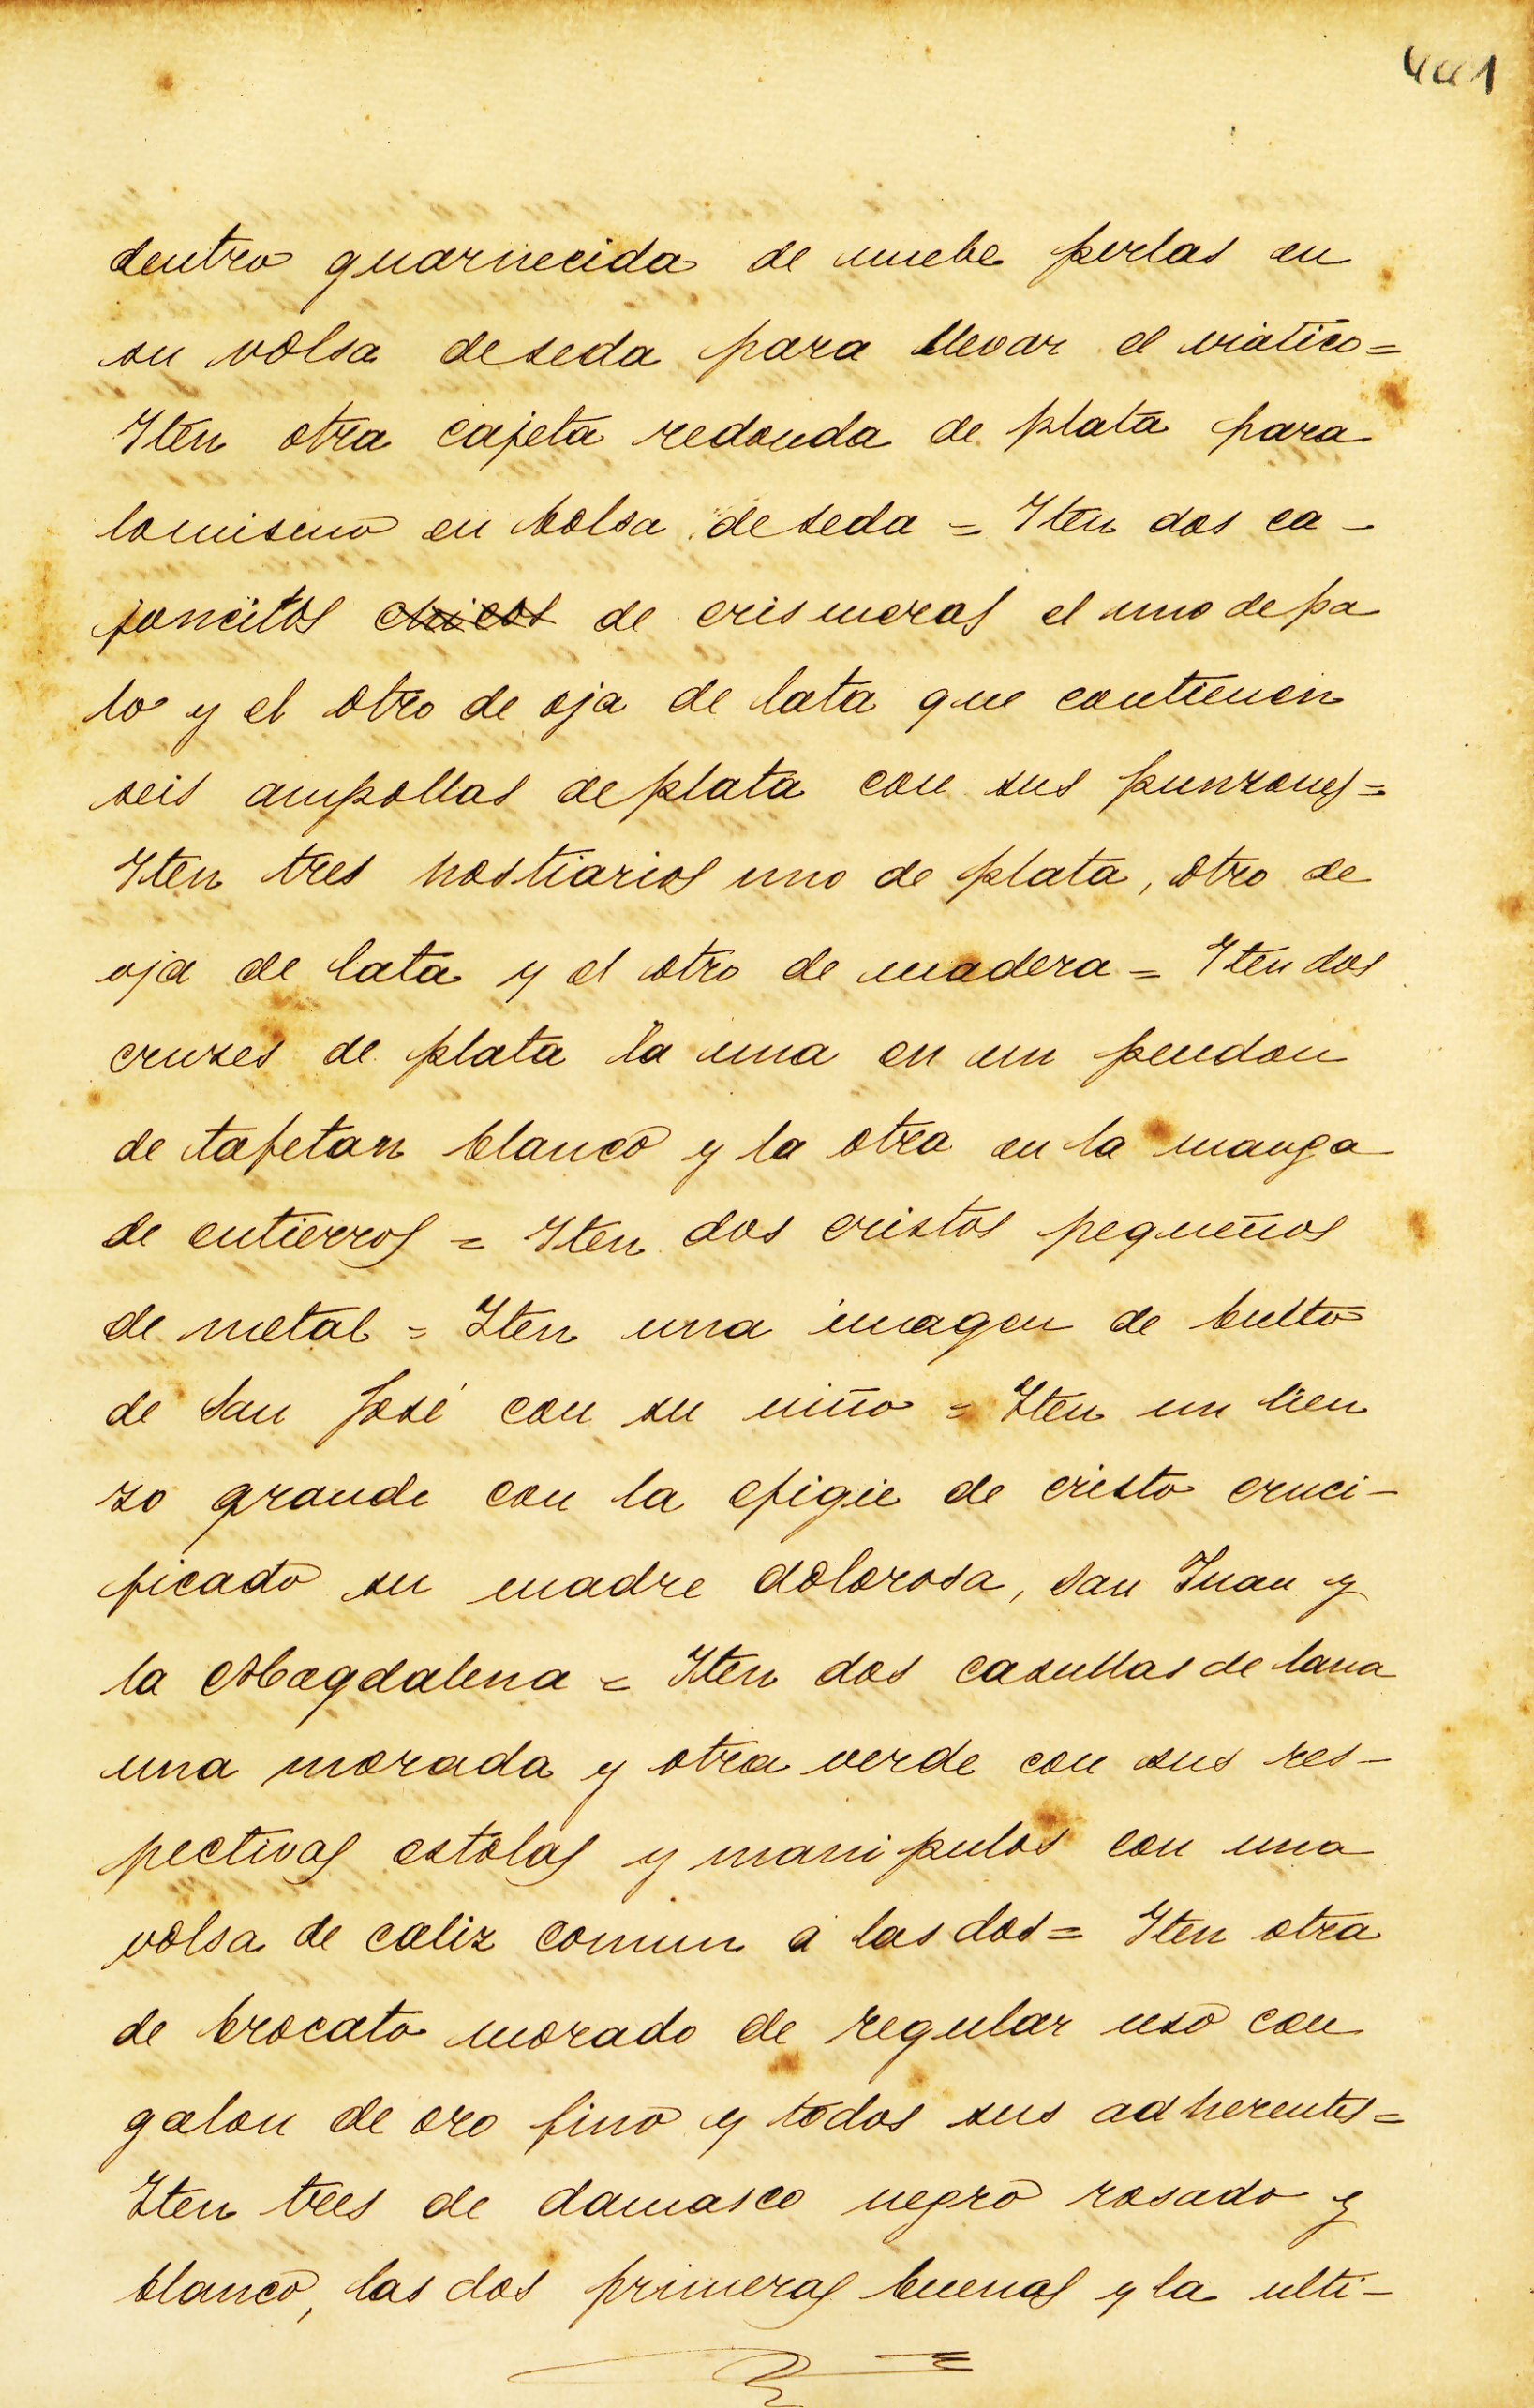 441
dentro guarnecida de nuebe perlas en
su volsa de seda para llevar el viatico =
Iten otra cajeta redonda de plata para
lo mismo en bolsa de seda = Iten dos ca -
joncitos chicos de crismeras el uno de pa
lo y el otro de oja de lata que contienen
seis ampollas de plata con sus punzones =
Iten tres hostiarios uno de plata, otro de
oja de lata y el otro de madera = Iten dos
cruzes de plata la una en un pendon
de tafetan blanco y la otra en la manga
de entierros = Iten dos cristos pequeños
de metal = Iten una imagen de bulto
de San José con su niño = Iten un lien
zo grande con la efigie de cristo cruci -
ficado su madre dolorosa, San Juan y
la Magdalena = Iten dos casullas de lana
una morada y otra verde con sus res -
pectivas estolas y manipulos con una
volsa de caliz comun á las dos = Iten otra
de brocato morado de regular uso con
galon de oro fino y todos sus adherentes =
Iten tres de damasco negro rosado y
blanco, las dos primeras buenas y la ulti -